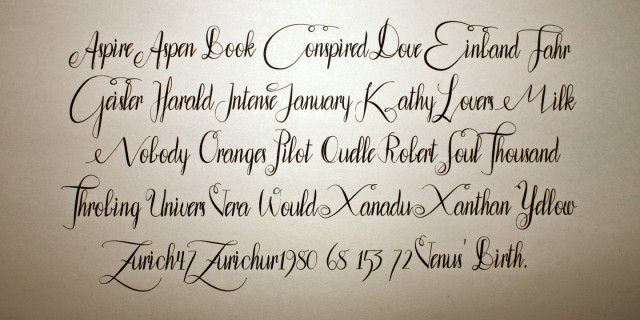 Aspire Aspen Book Conspired Dove Einband Fahr
Geisler Harald Intense January Kathy Lovers Milk
Nobody Oranges Pilot Quelle Robert Soul Thousand
Throbing Univers Vera Would Xanadu Xanthan Yellow
Zurich47 Zurichur1980 68 153 72 Venus' Birth.